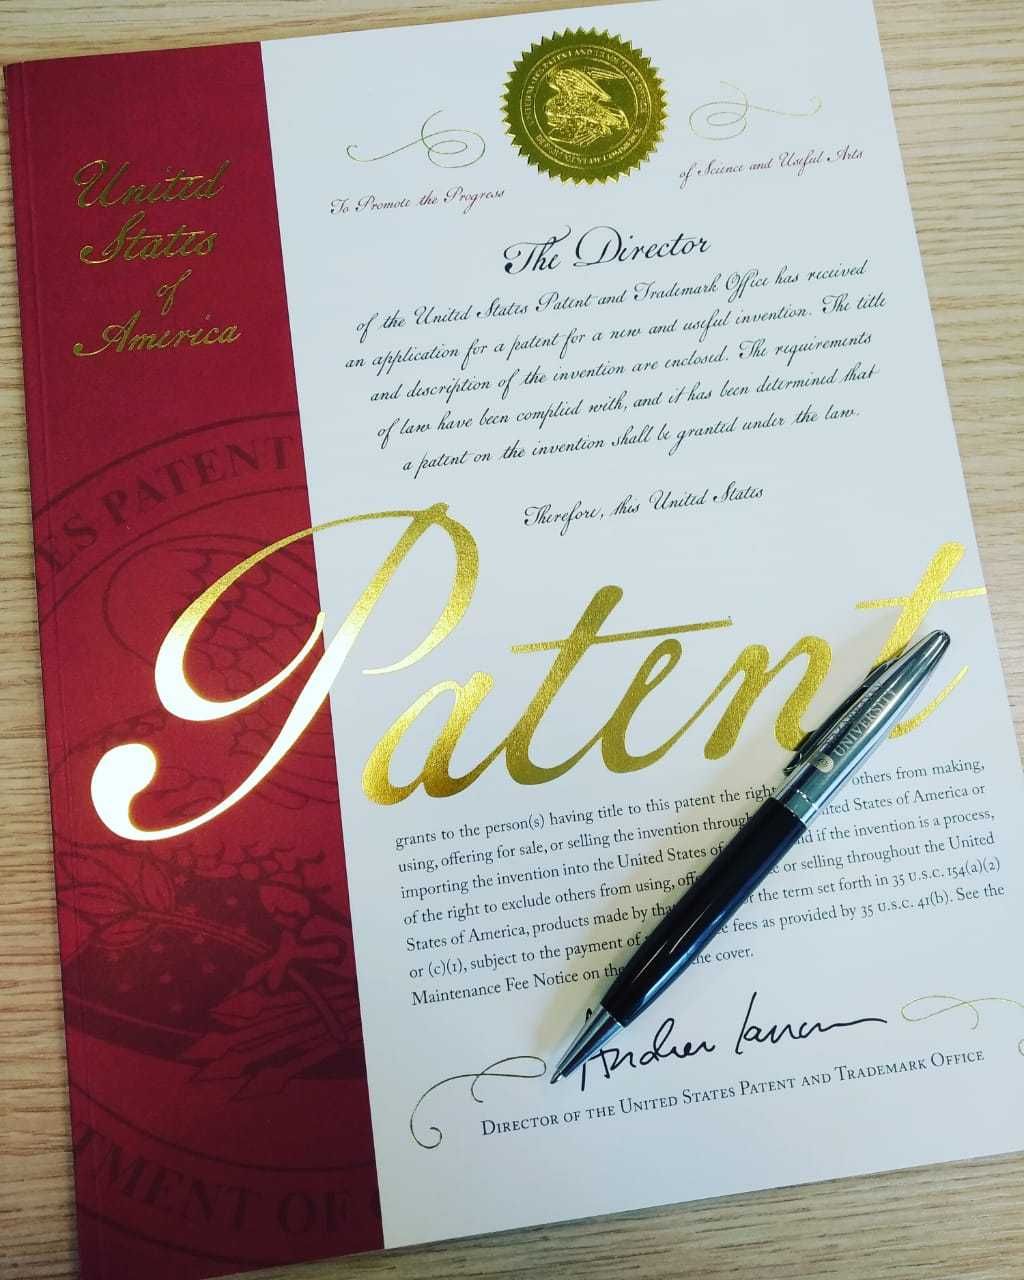 United
States
of
America
UNITED STATES PATENT AND TRADEMARK OFFICE
DEPARTMENT OF COMMERCE
To Promote the Progress
of Science and Useful Arts
The Director
of the United States Patent and Trademark Office has received
an application for a patent for a new and useful invention. The title
and description of the invention are enclosed. The requirements
of law have been complied with, and it has been determined that
a patent on the invention shall be granted under the law.
Therefore, this United States
ES PATENT
Patent
UNIVERSITY
grants to the person(s) having title to this patent the right others from making,
using, offering for sale, or selling the invention through United States of America or
importing the invention into the United States of and if the invention is a process,
of the right to exclude others from using, or selling throughout the United
States of America, products made by the term set forth in 35 U.S.C. 154(a)(2)
or (c)(1), subject to the payment of fees as provided by 35 U.S.C. 41(b). See the
Maintenance Fee Notice on the cover.
TMENT OF
Andrei Iancu
DIRECTOR OF THE UNITED STATES PATENT AND TRADEMARK OFFICE